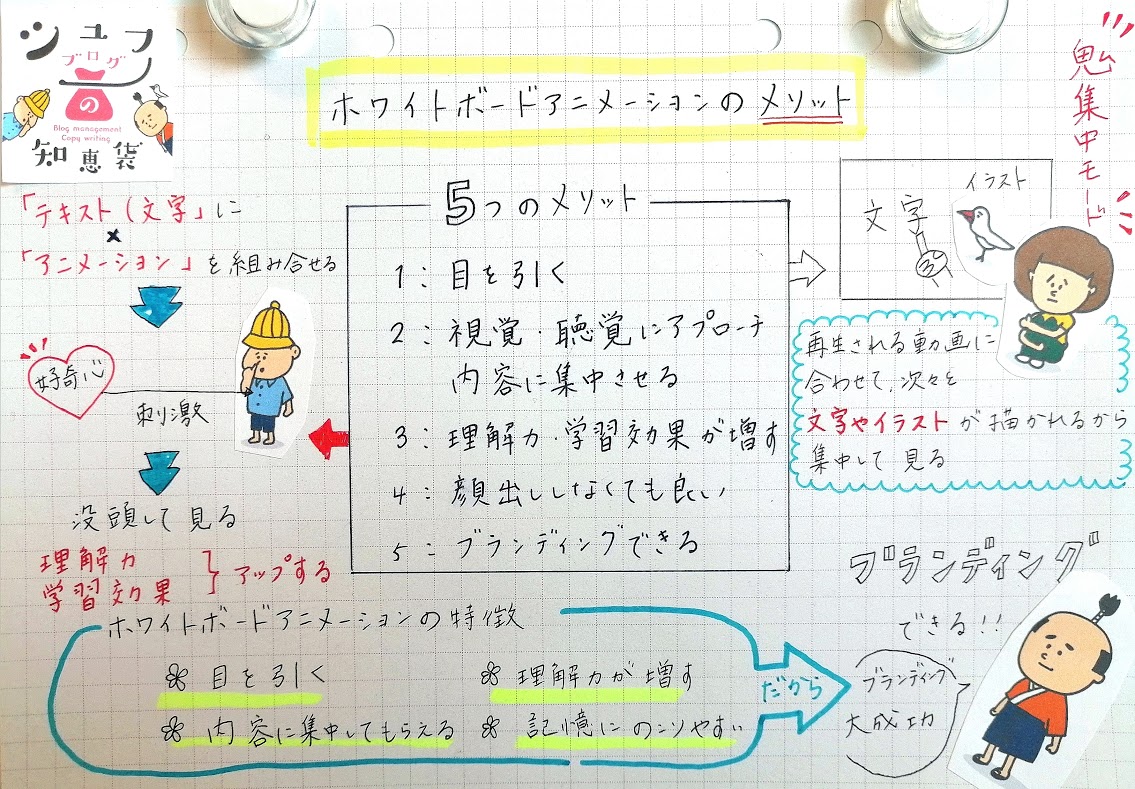 シュフ
ブログ
の
Blog management
Copy writing
知恵袋
ホワイトボードアニメーションのメリット
鬼集中モード
「テキスト(文字」に
×
「アニメーション」を組み合せる
好奇心
刺激
没頭して見る
理解力
学習効果
} アップする
5つのメリット
1:目を引く
2:視覚・聴覚にアプローチ
内容に集中させる
3:理解力・学習効果が増す
4:顔出ししなくても良い
5:ブランディングできる
文字
イラスト
再生される動画に
合わせて、次々と
文字やイラストが描かれるから
集中して見る
ホワイトボードアニメーションの特徴
目を引く
理解力が増す
内容に集中してもらえる
記憶にのこりやすい
だから
ブランディング
できる!!
ブランディング
大成功